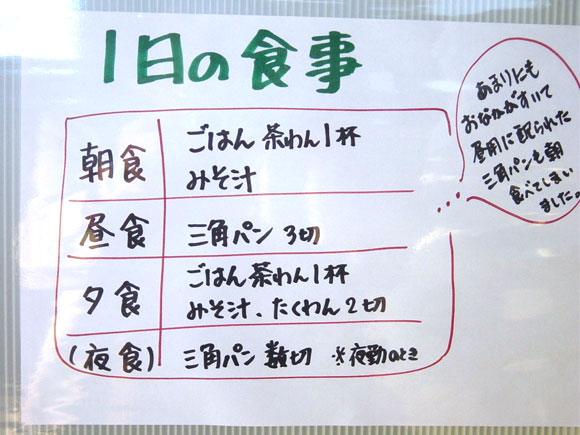 1日の食事
朝食
ごはん 茶わん1杯
みそ汁
昼食
三角パン 3切
夕食
ごはん茶わん1杯
みそ汁、たくわん2切
(夜食)
三角パン 数切 ※夜勤のとき
あまりにも
おなかがすいて
昼用に配られた
三角パンも朝
食べてしまい
ました。